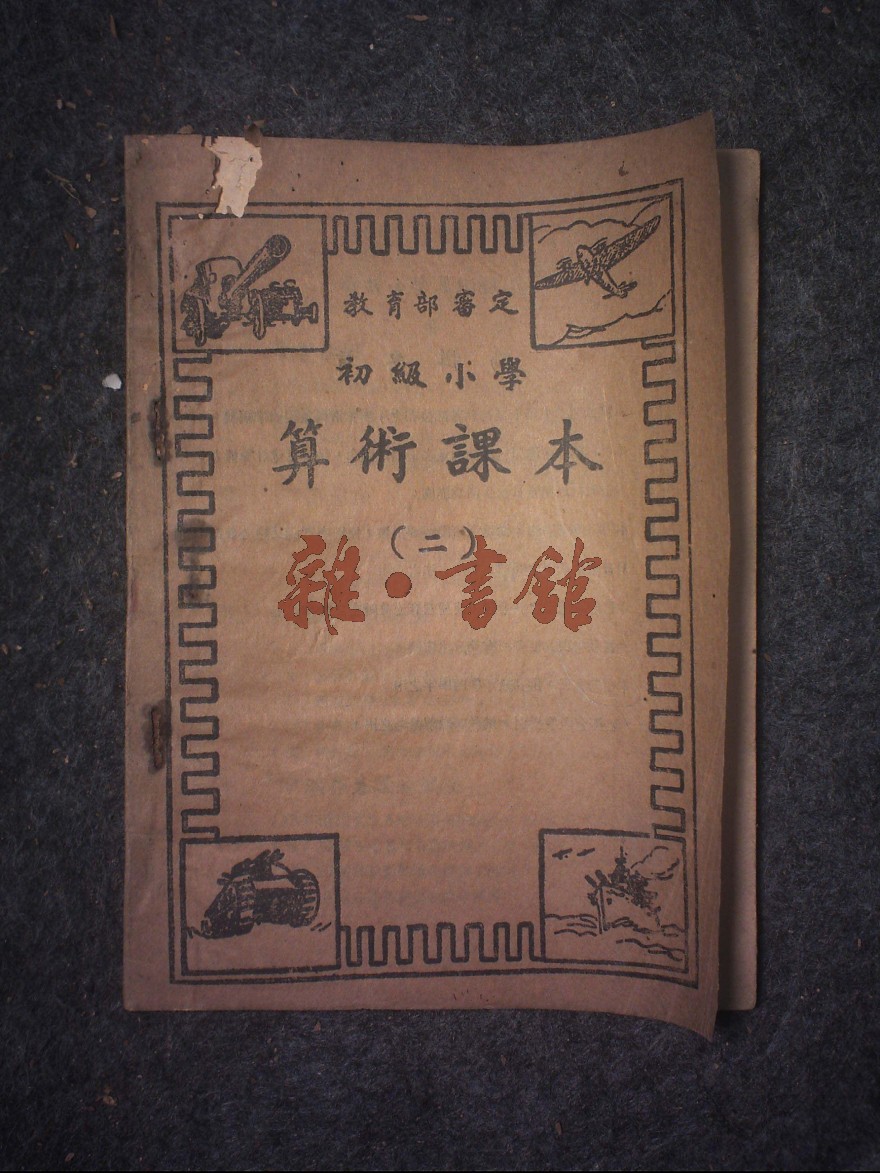 教育部審定
初級小學
算術課本
(二)
雜·書館